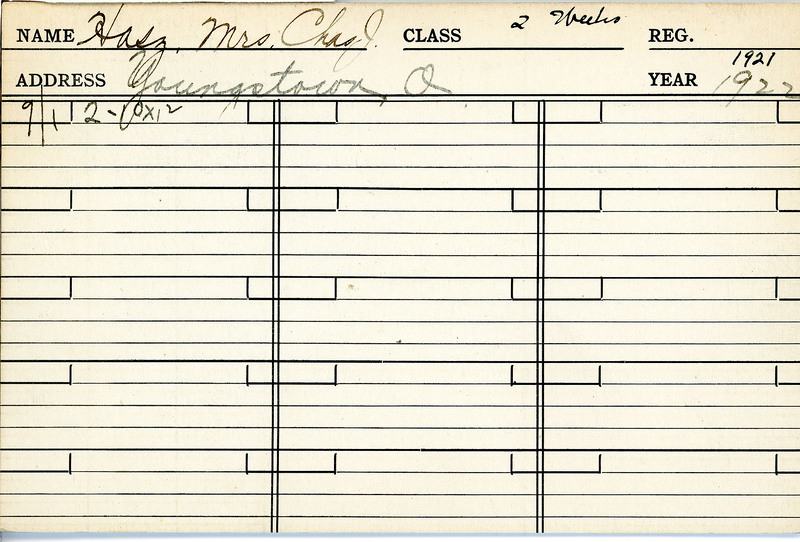 NAME Hasz, Mrs. Chas J. CLASS 2 Weeks REG.
1921
ADDRESS Youngstown, O YEAR 1922
9/1 2-10x12